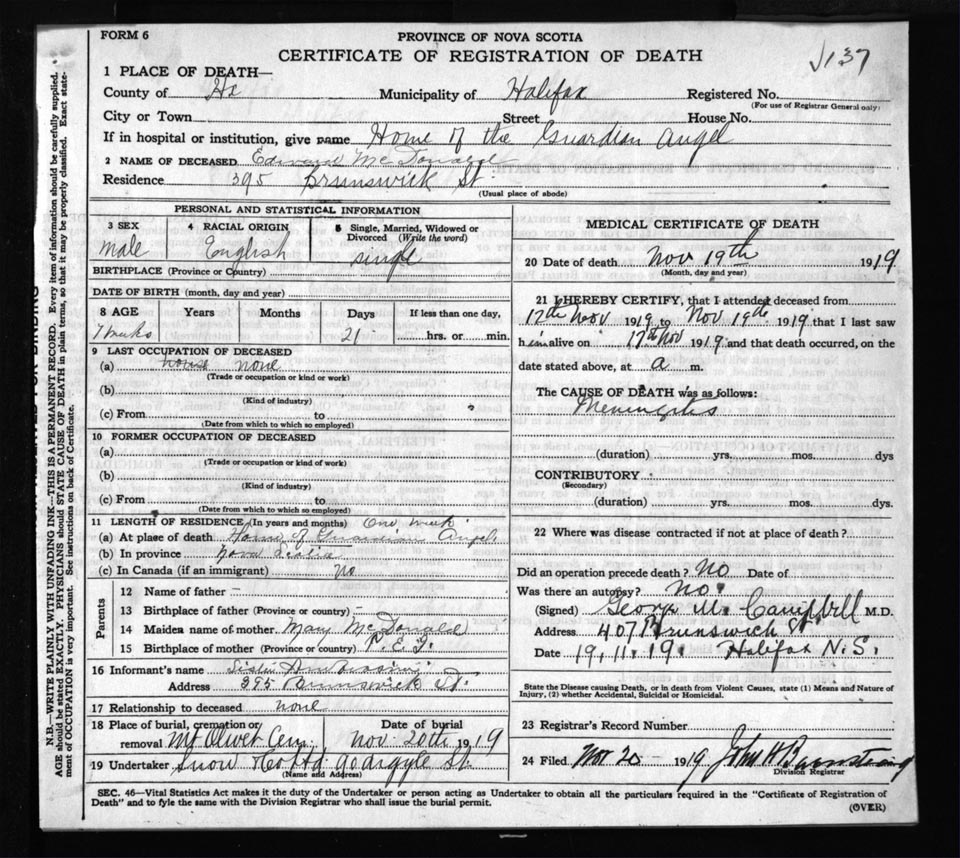 FORM 6
PROVINCE OF NOVA SCOTIA
CERTIFICATE OF REGISTRATION OF DEATH
137
1 PLACE OF DEATH—
County of Hx Municipality of Halifax Registered No.
(For use of Registrar General only)
City or Town Street House No.
If in hospital or institution, give name Home of the Guardian Angel
2 NAME OF DECEASED Edward McDonald
Residence 395 Brunswick St.
(Usual place of abode)
PERSONAL AND STATISTICAL INFORMATION
3 SEX 4 RACIAL ORIGIN 5 Single, Married, Widowed or Divorced (Write the word)
Male English single
BIRTHPLACE (Province or Country)
DATE OF BIRTH (month, day and year)
8 AGE Years Months Days If less than one day,
7 weeks 21 hrs. or min.
9 LAST OCCUPATION OF DECEASED
(a) none
(Trade or occupation or kind or work)
(b)
(Kind of industry)
(c) From to
(Date from which to which so employed)
10 FORMER OCCUPATION OF DECEASED
(a)
(Trade or occupation or kind of work)
(b)
(Kind of industry)
(c) From to
(Date from which to which so employed)
11 LENGTH OF RESIDENCE (In years and months) One week
(a) At place of death Home of Guardian Angel
(b) In province Nova Scotia
(c) In Canada (if an immigrant) No
Parents
12 Name of father –
13 Birthplace of father (Province or country) –
14 Maiden name of mother. Mary McDonald
15 Birthplace of mother (Province or country) P.E.I.
16 Informant's name Sister
Address 395 Brunswick St.
17 Relationship to deceased none
18 Place of burial, cremation or removal Mt Olivet Cem. Date of burial Nov 20th 1919
19 Undertaker Snow & Co Ltd 90 Argyle St.
(Name and Address)
MEDICAL CERTIFICATE OF DEATH
20 Date of death Nov 19th 1919
(Month, day and year)
21 I HEREBY CERTIFY, that I attended deceased from
17th Nov 1919 to Nov 19th 1919 that I last saw
him alive on 17th Nov 1919 and that death occurred, on the
date stated above, at a m.
The CAUSE OF DEATH was as follows:
Meningitis
(duration) yrs. mos. dys
CONTRIBUTORY
(Secondary)
(duration) yrs. mos. dys.
22 Where was disease contracted if not at place of death?
Did an operation precede death? No Date of
Was there an autopsy? No.
(Signed) George M. Campbell M.D.
Address 407 Brunswick St.
Date 19.11.19. Halifax N.S.
State the Disease causing Death, or in death from Violent Causes, state (1) Means and Nature of
Injury, (2) whether Accidental, Suicidal or Homicidal.
23 Registrar's Record Number
24 Filed, Nov 20 1919 John H Barnstead
Division Registrar
SEC. 46—Vital Statistics Act makes it the duty of the Undertaker or person acting as Undertaker to obtain all the particulars required in the "Certificate of Registration of
Death" and to fyle the same with the Division Registrar who shall issue the burial permit.
(OVER)
N.B.—WRITE PLAINLY WITH UNFADING INK—THIS IS A PERMANENT RECORD. Every item of information should be carefully supplied.
AGE should be stated EXACTLY. PHYSICIANS should STATE CAUSE OF DEATH in plain terms, so that it may be properly classified. Exact state-
ment of OCCUPATION is very important. See instructions on back of Certificate.